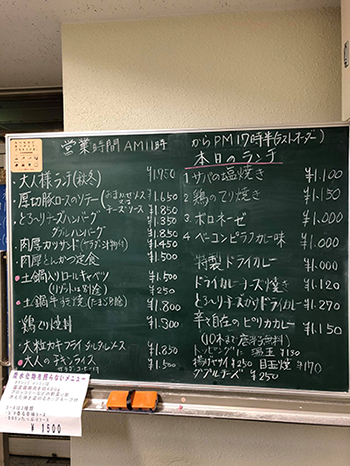 営業時間 AM11時
からPM17時半(ラストオーダー)
・大人様ランチ(秋冬) ¥1.750
・厚切豚ロースのソテー ¥1.650
チーズソース ¥1.850
・とろ〜りチーズハンバーグ ¥1.350
ダブルハンバーグ ¥1.850
・肉厚カツサンド(サラダ・汁物付) ¥1.450
・肉厚とんかつ定食 ¥1.500
・土鍋入りロールキャベツ ¥1.500
(リゾットは別途) ¥250
・土鍋牛すき焼き(たまご別途) ¥1.800
・鶏ひつ焼丼 ¥1.300
・大粒カキフライタルタルソース ¥1.850
・大人のチキンライス ¥1.500
本日のランチ
1 サバの塩焼き ¥1.100
2 鶏のてり焼き ¥1.150
3 ボロネーゼ ¥1.000
4 ベーコンピラフカレー味 ¥1.000
特製ドライカレー ¥1.000
ドライカレーチーズ焼き ¥1.120
とろ〜りチーズがけドライカレー ¥1.270
辛さ自在のピリカカレー ¥1.150
(10本まで唐辛子無料)
トッピングに 温玉 ¥130
揚げナサイ ¥250 目玉焼 ¥170
ダブルチーズ ¥250
炭水化物を摂らないメニュー
¥1500